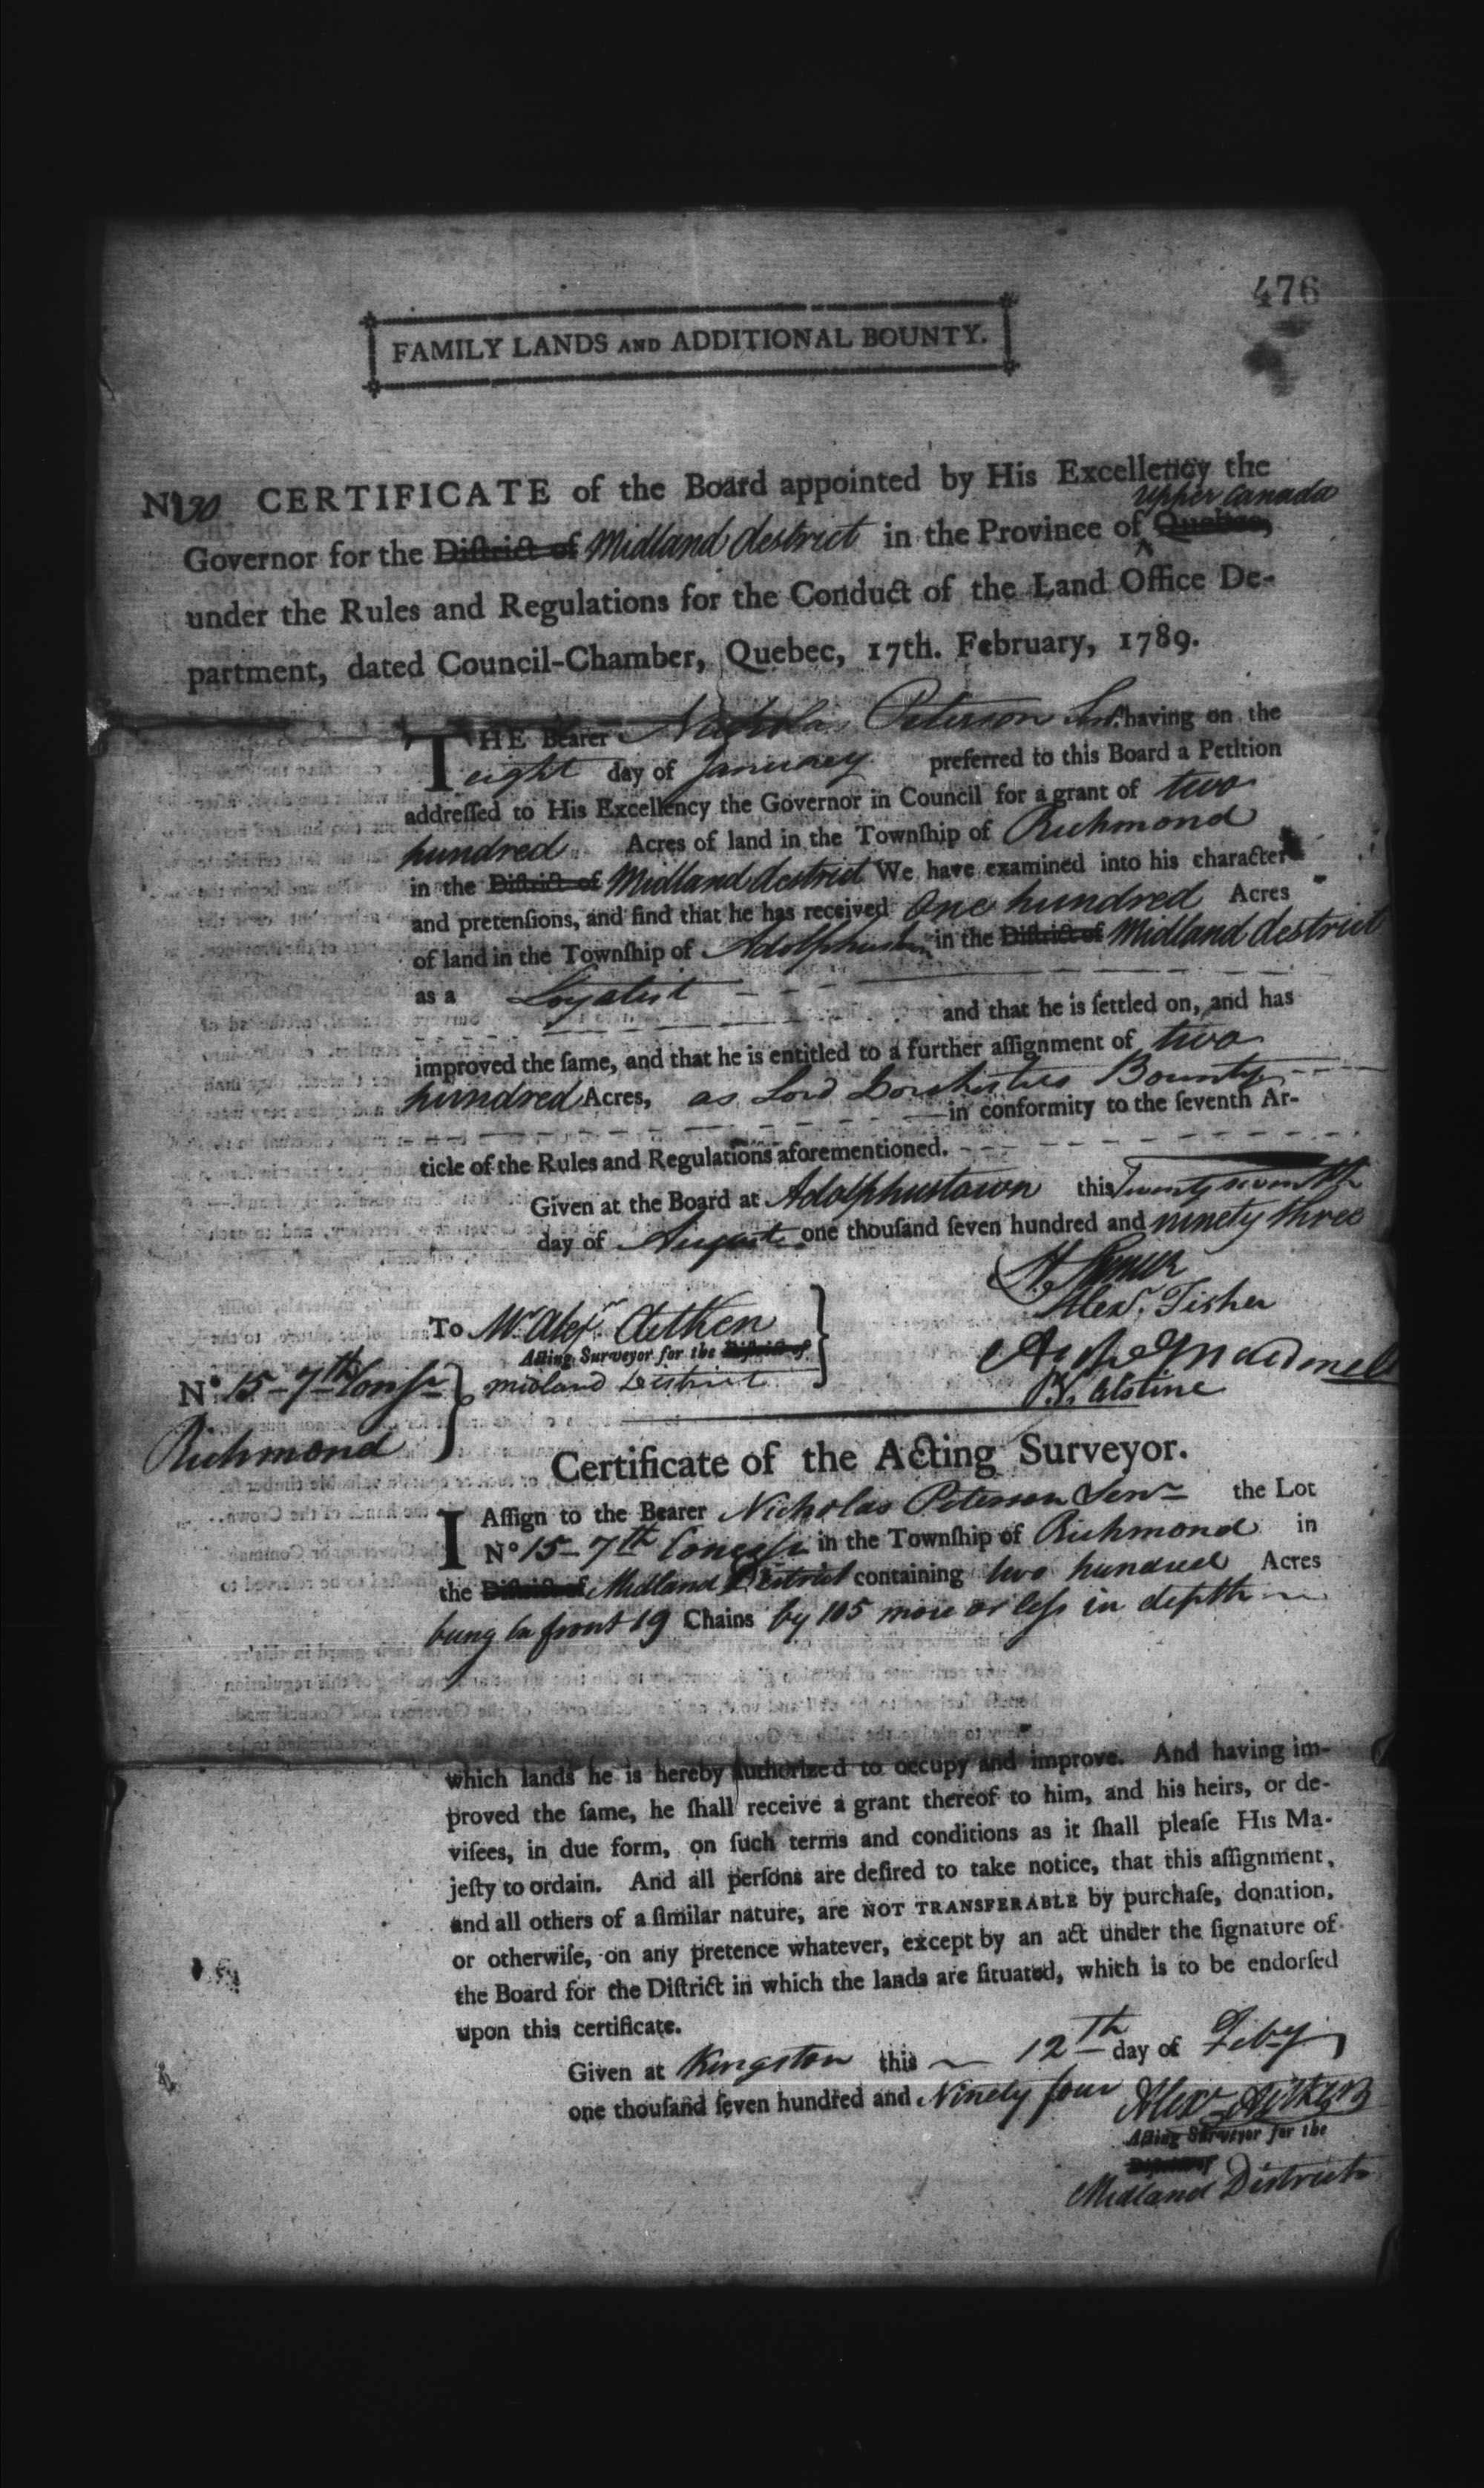 476
FAMILY LANDS AND ADDITIONAL BOUNTY.
No 130 CERTIFICATE of the Board appointed by His Excellency the
Upper Canada
Governor for the Diſtrict of Midland destrict in the Province of Quebec,
under the Rules and Regulations for the Conduct of the Land Office De-
partment, dated Council-Chamber, Quebec, 17th. February, 1789.
THE Bearer Nicholas Peterson Senr. having on the
eight day of January preferred to this Board a Petition
addreſſed to His Excellency the Governor in Council for a grant of two
hundred Acres of land in the Townſhip of Richmond
in the Diſtrict of Midland destrict We have examined into his character
and pretenſions, and find that he has received One hundred Acres
of land in the Townſhip of Adolphustown in the Diſtrict of Midland destrict
as a Loyalist and that he is ſettled on, and has
improved the ſame, and that he is entitled to a further aſſignment of two
hundred Acres, as Lord Dorchesters Bounty
in conformity to the ſeventh Ar-
ticle of the Rules and Regulations aforementioned.
Given at the Board at Adolphustown this Twenty seventh
day of August one thouſand ſeven hundred and ninety three
H. Spencer
Alexr. Fisher
To Mr. Alexr. Aitken
Acting Surveyor for the Diſtrict of
midland District
Archd. Macdonell
P. V. Alstine
No 15 - 7th Conſn
Richmond
Certificate of the Acting Surveyor.
I Aſſign to the Bearer Nicholas Peterson Senr the Lot
No 15 - 7th Conceſſn in the Townſhip of Richmond in
the Diſtrict of Midland District containing two hundred Acres
being in front 19 Chains by 105 more or leſs in depth
which lands he is hereby authorized to occupy and improve. And having im-
proved the ſame, he ſhall receive a grant thereof to him, and his heirs, or de-
viſees, in due form, on ſuch terms and conditions as it ſhall pleaſe His Ma-
jeſty to ordain. And all perſons are deſired to take notice, that this aſſignment,
and all others of a ſimilar nature, are NOT TRANSFERABLE by purchaſe, donation,
or otherwiſe, on any pretence whatever, except by an act under the ſignature of
the Board for the Diſtrict in which the lands are ſituated, which is to be endorſed
upon this certificate.
Given at Kingston this 12th day of Feby
one thouſand ſeven hundred and Ninety four Alexr Aitken
Acting Surveyor for the
Diſtrict of
Midland District